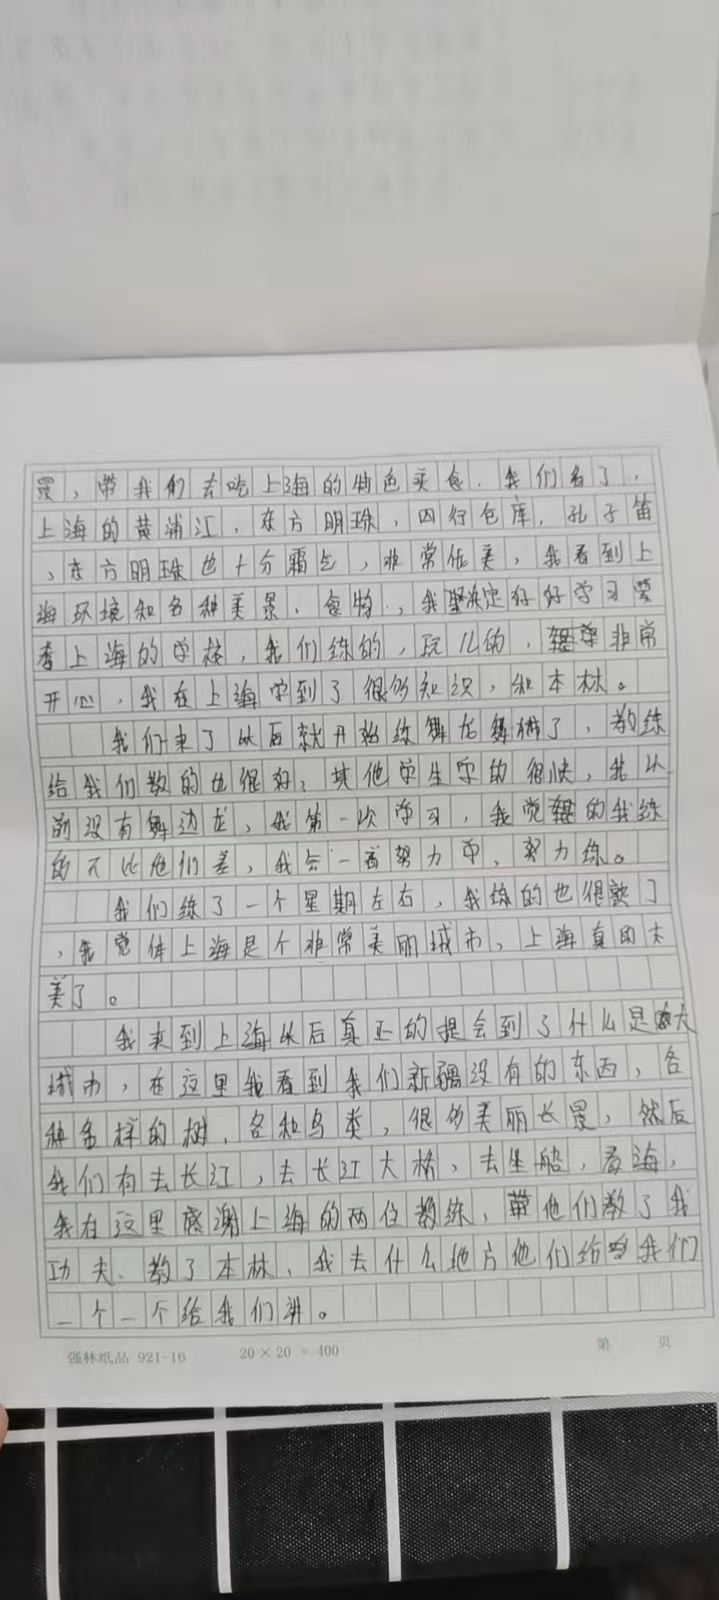 景，带我们去吃上海的特色美食，我们看了，
上海的黄浦江，东方明珠，四行仓库，孔子庙
，东方明珠也十分霸气，非常优美，我看到上
海环境和各种美景，食物，我坚决定好好学习学
考上海的学校，我们练的，玩儿的，非常
开心，我在上海学到了很多知识，和本林。
我们来了以后就开始练舞龙舞狮了，教练
给我们教的也很好，其他学生学的很快，我以
前没有舞过龙，我第一次学习，我觉的我练
的不比他们差，我会一直努力学，努力练。
我们练了一个星期左右，我练的也很熟了
，我觉体上海是个非常美丽城市，上海真的太
美了。
我来到上海以后真正的提会到了什么是大
城市，在这里我看到我们新疆没有的东西，各
种各样的树，各种鸟类，很多美丽长景，然后
我们有去长江，去长江大桥，去坐船，看海，
我在这里感谢上海的两位教练，他们教了我
功夫，教了本林，我去什么地方他们给我们
一个一个给我们讲。
强林纸品 921-16 20×20=400 第 页